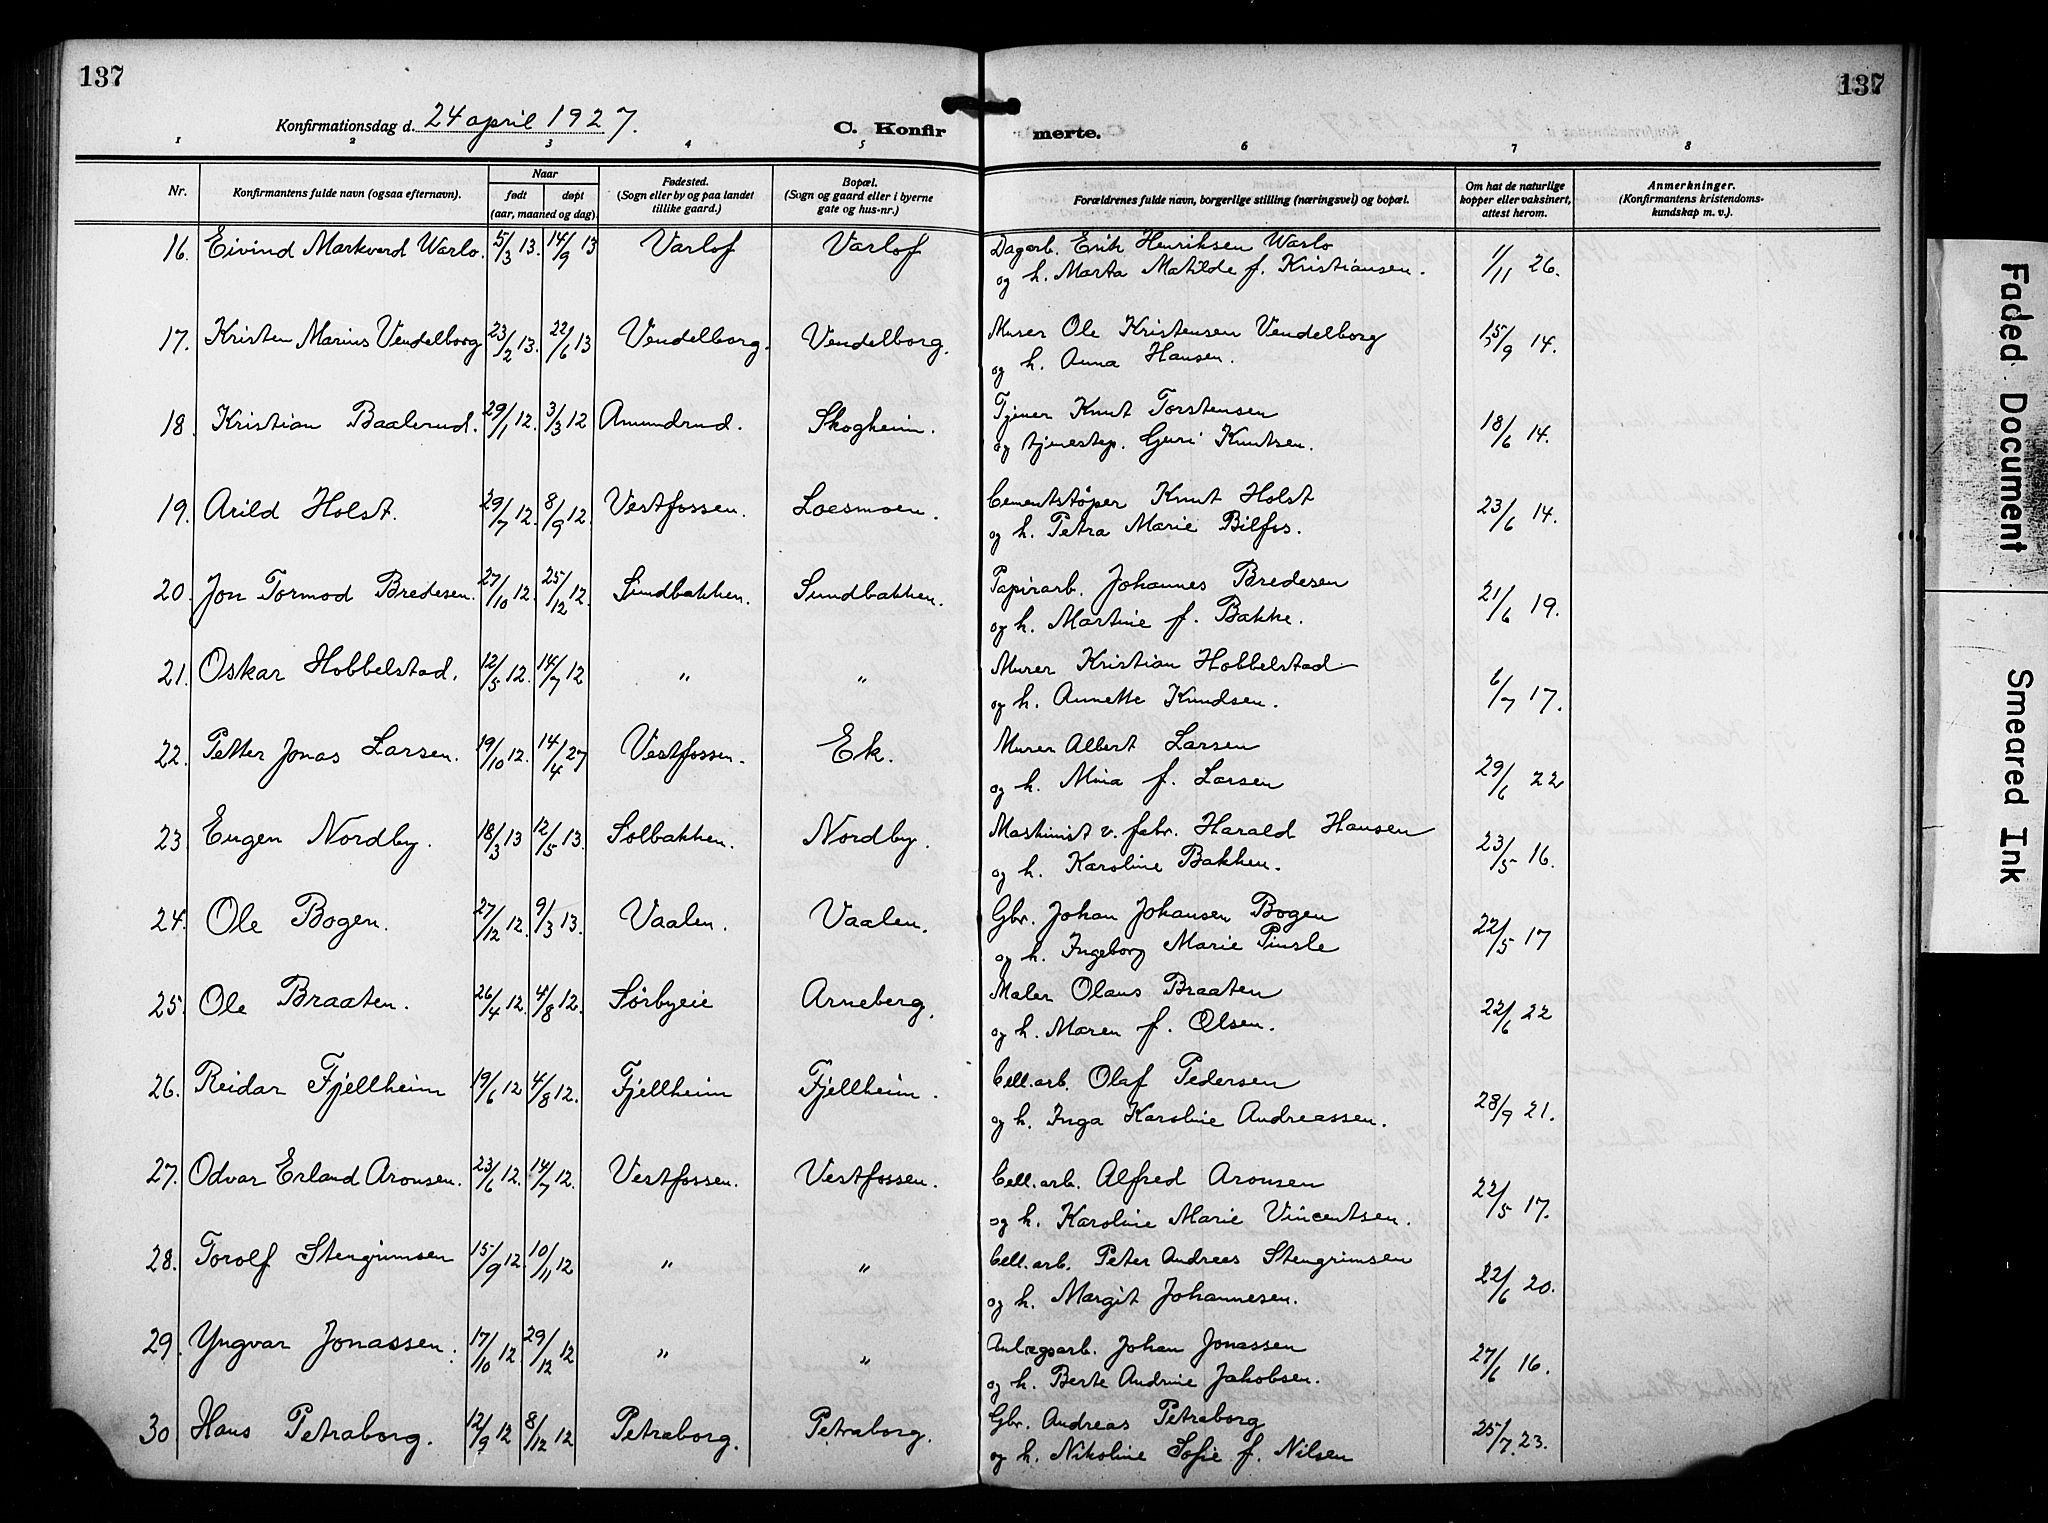 137
137
Konfirmationsdag d. 24 april 1927.
C. Konfir merte.
1 2 3 4 5 6 7 8
Nr.
Konfirmantens fulde navn (ogsaa efternavn).
Naar
født døpt
(aar, maaned og dag).
Fødested.
(Sogn eller by og paa landet
tillike gaard.)
Bopæl.
(Sogn og gaard eller i byerne
gate og hus-nr.)
Forældrenes fulde navn, borgerlige stilling (næringsvei) og bopæl.
Om hat de naturlige
kopper eller vaksinert,
attest herom.
Anmerkninger.
(Konfirmantens kristendoms-
kundskap m. v.).
16. Eivind Markverd Warlo. 5/3 13. 14/9 13 Varlof Varlof Dagarb. Erik Henriksen Warlo 1/11 26.
og h. Marta Matilde f. Kristiansen.
17. Kristen Marius Vendelborg 23/2 13. 22/6 13 Vendelborg. Vendelborg. Murer Ole Kristensen Vendelborg 15/9 14.
og h. Anna Hansen.
18. Kristian Baalerud. 29/1 12. 3/3 12 Amundrud. Skogheim. Tjener Knut Torstensen 18/6 14.
og tjenestep. Guri Knutsen.
19. Arild Holst. 29/7 12. 8/9 12. Vestfossen. Loesmoen. Cementstøper Knut Holst 23/6 14.
og h. Petra Marie Bilfos.
20. Jon Tormod Bredesen. 27/10 12. 25/12 12. Sundbakken. Sundbakken. Papirarb. Johannes Bredesen 21/6 19.
og h. Martine f. Bakke.
21. Oskar Hobbelstad. 12/5 12. 14/7 12 " " Murer Kristian Hobbelstad 6/7 17.
og h. Annette Knudsen.
22. Petter Jonas Larsen. 19/10 12. 14/4 27 Vestfossen. Ek. Murer Albert Larsen 29/6 22
og h. Mina f. Larsen
23. Eugen Nordby. 18/3 13 12/5 13. Solbakken. Nordby. Maskinist v. fabr. Harald Hansen 23/5 16.
og h. Karoline Bakken.
24. Ole Bogen. 27/12 12. 9/3 13. Vaalen. Vaalen. Gbr. Johan Johansen Bogen 22/5 17
og h. Ingeborg Marie Pinsle
25. Ole Braaten. 26/4 12. 4/8 12. Sørbyeie Arneberg. Maler Olaus Braaten 22/6 22
og h. Maren f. Olsen.
26. Reidar Fjellheim 19/6 12 4/8 12. Fjellheim Fjellheim. Cell. arb. Olaf Pedersen 28/9 21.
og h. Inga Karoline Andreassen.
27. Odvar Erland Aronsen. 23/6 12. 14/7 12. Vestfossen. Vestfossen. Cell. arb. Alfred Aronsen 22/5 17.
og h. Karoline Marie Vincentsen.
28. Torolf Stengrimsen 15/9 12. 10/11 12 " " Cell. arb. Peter Andreas Stengrimsen 22/6 20.
og h. Margit Johannesen.
29. Yngvar Jonassen. 17/10 12 29/12 12 " " Anlægsarb. Johan Jonassen 27/6 16.
og h. Berte Andrine Jakobsen.
30 Hans Petraborg. 12/9 12 8/12 12 Petraborg. Petraborg. Gbr. Andreas Petraborg 25/7 23.
og h. Nikoline Sofie f. Nilsen
Faded Document
Smeared Ink